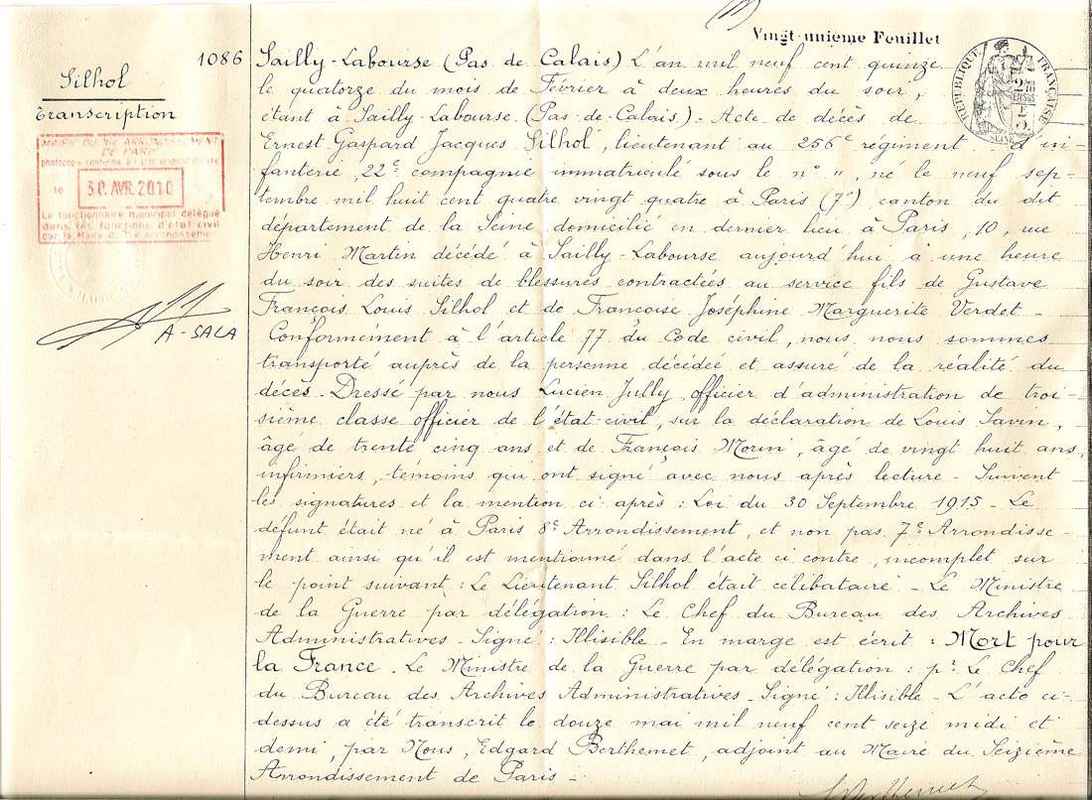 Vingt-unième Feuillet
RÉPUBLIQUE FRANÇAISE
1086
Silhol
Transcription
MAIRIE DU XVIe ARRONDISSEMENT
DE PARIS
le 30 AVR. 2010
Le fonctionnaire municipal délégué
dans les fonctions d'état civil
par le Maire du XVIe arrondissement
A-SALA
Sailly-Labourse (Pas de Calais) L'an mil neuf cent quinze
le quatorze du mois de Février à deux heures du soir,
étant à Sailly-Labourse (Pas-de-Calais) - Acte de décès de
Ernest Gaspard Jacques Silhol, lieutenant au 256e régiment d'in-
fanterie, 22e compagnie immatriculé sous le n° ", né le neuf sep-
tembre mil huit cent quatre vingt quatre à Paris (7e) canton du dit
département de la Seine domicilié en dernier lieu à Paris, 10, rue
Henri Martin décédé à Sailly-Labourse aujourd'hui à une heure
du soir des suites de blessures contractées au service fils de Gustave
François Louis Silhol et de Françoise Joséphine Marguerite Verdet -
Conformément à l'article 77 du Code civil, nous nous sommes
transporté auprès de la personne décédée et assuré de la réalité du
décès - Dressé par nous Lucien Jully officier d'administration de troi-
sième classe officier de l'état-civil, sur la déclaration de Louis Savin,
âgé de trente cinq ans et de François Morin, âgé de vingt huit ans,
infirmiers, témoins qui ont signé avec nous après lecture - Suivent
les signatures et la mention ci-après : Loi du 30 Septembre 1915 - Le
défunt était né à Paris 8e Arrondissement, et non pas 7e Arrondisse-
ment ainsi qu'il est mentionné dans l'acte ci contre, incomplet sur
le point suivant : Le Lieutenant Silhol était célibataire - Le Ministre
de la Guerre par délégation : Le Chef du Bureau des Archives
Administratives - Signé : Illisible - En marge est écrit : Mort pour
la France. Le Ministre de la Guerre par délégation : pr. Le Chef
du Bureau des Archives Administratives - Signé : Illisible - L'acte ci-
dessus a été transcrit le douze mai mil neuf cent seize midi et
demi, par Nous, Edgard Berthemet, adjoint au Maire du Seizième
Arrondissement de Paris -